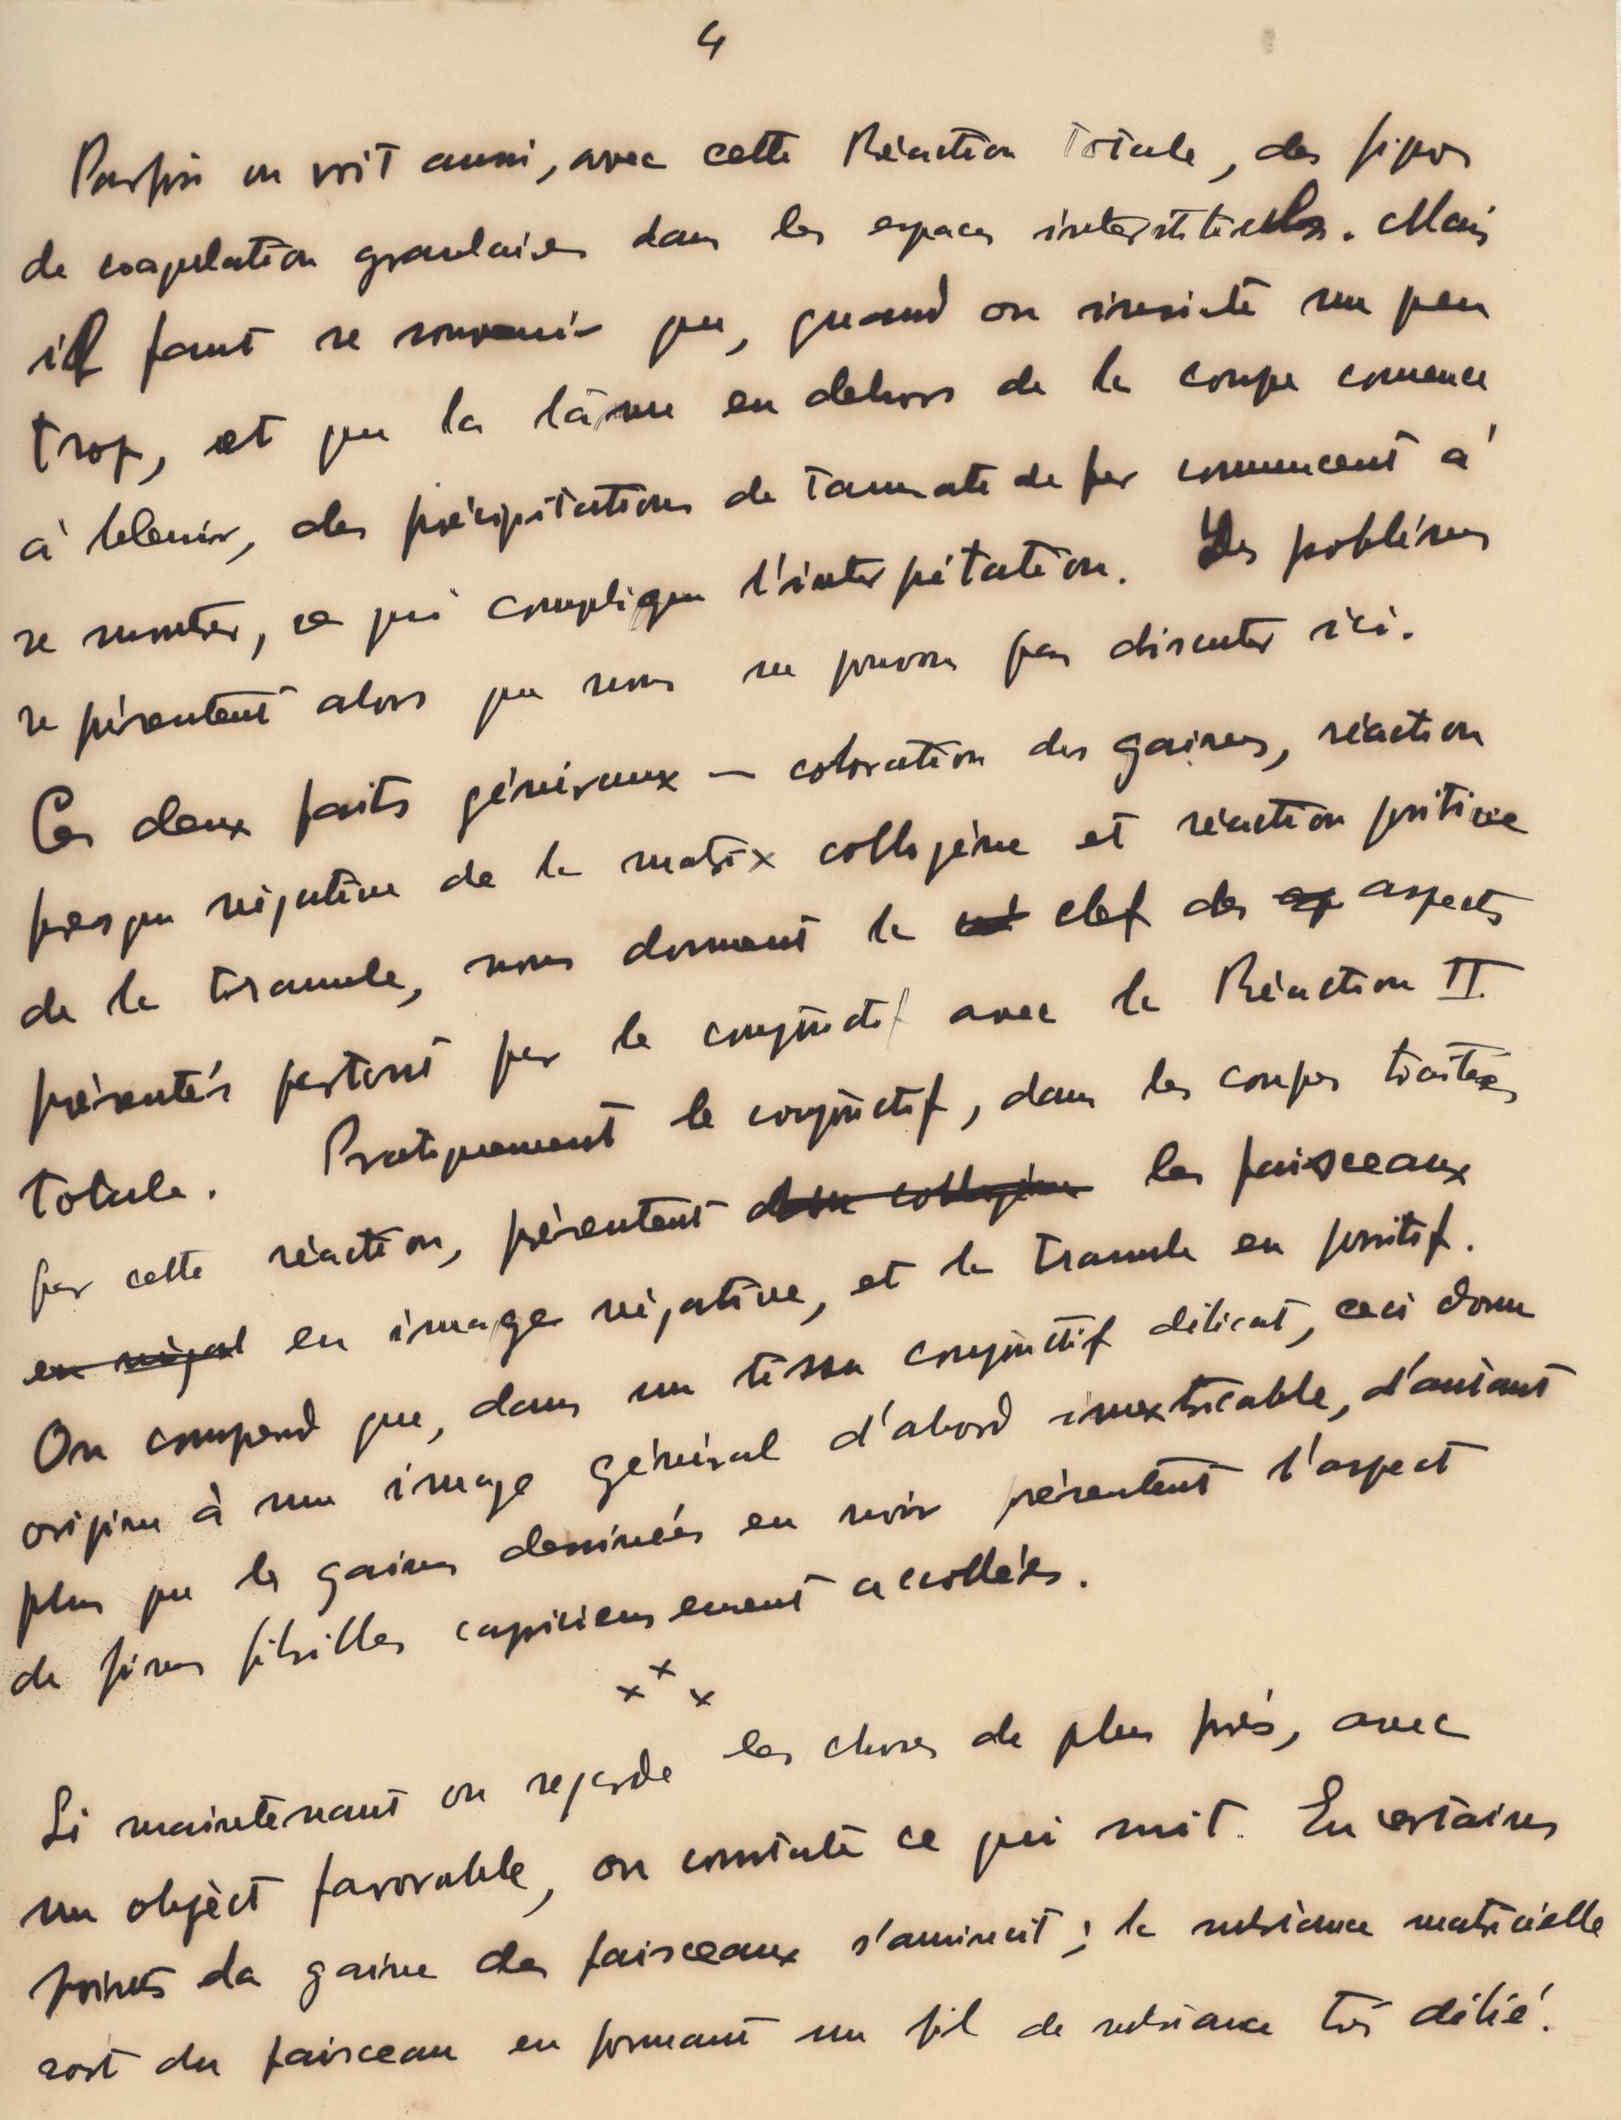 4
Parfois on voit aussi, avec cette Réaction Totale, des figures
de coagulation granulaires dans les espaces interstitielles. Mais
il faut se souvenir que, quand on insiste un peu
trop, et que la lâme en dehors de la coupe comence
à bleuir, des précipitations de tannate de fer commencent à
se montrer, ce qui complique l'interprétation. Des problèmes
se présentent alors que nous ne pouvons pas discuter ici.
Ces deux faits généraux — coloration des gaines, réaction
presque négative de la matrix collagène et réaction positive
de la tramule, nous donnent la clef des aspects
présentés partout par le conjonctif avec la Réaction II
Totale. Pratiquement le conjonctif, dans les coupes traitées
par cette réaction, présentent les faisceaux
en image négative, et la tramule en positif.
On comprend que, dans un tissu conjonctif délicat, ceci donne
origine à une image général d'abord inextricable, d'autant
plus que les gaines dessinées en noir présentent l'aspect
de fines fibrilles capricieusement accollées.
x x x
Si maintenant on regarde les choses de plus près, avec
un objèct favorable, on constate ce qui suit. En certains
points la gaine des faisceaux s'amincit; la substance matricielle
sort du faisceau en formant un fil de substance très délié.